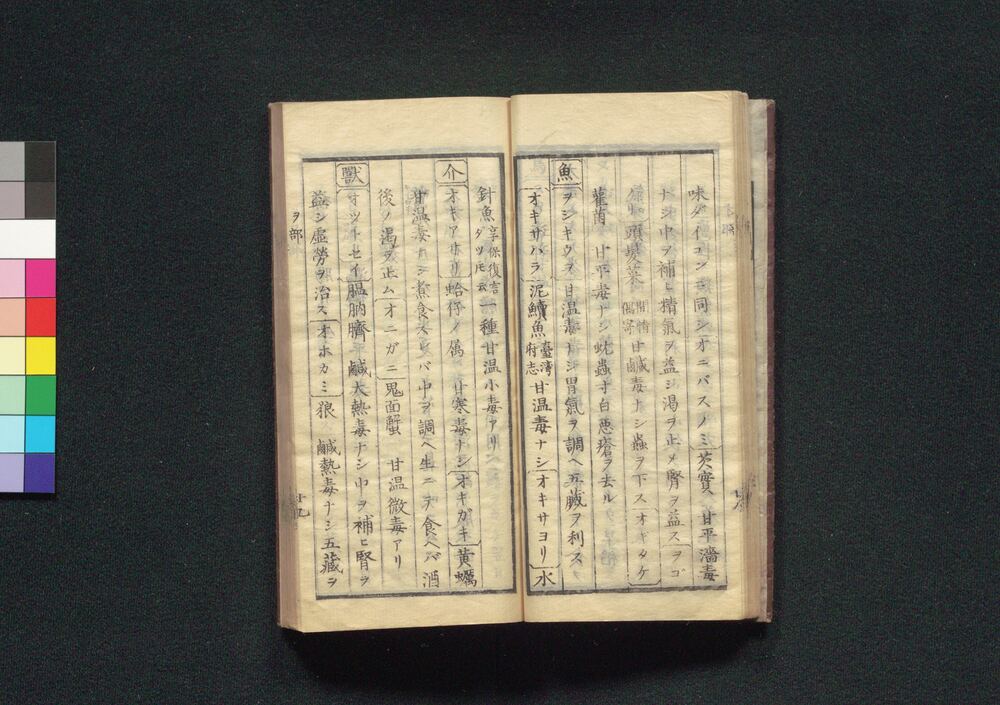 味ダイコンニ同シオニバスノミ 芡實 甘平濇毒
ナシ中ヲ補ヒ精氣ヲ益シ渴ヲ止メ腎ヲ益スヲゴ
頭髮菜 閒情偶寄 甘鹹毒ナシ蟲ヲ下スオギタケ
雚菌 甘平毒ナシ蚘蟲寸白悪瘡ヲ去ル
魚 ヲシキウヲ 甘温毒ナシ胃氣ヲ調ヘ五臓ヲ利ス
オキサハラ 泥鰽魚 臺灣府志 甘温毒ナシ オキサヨリ 水
針魚 享保復言ダツ氏云 一種甘温小毒アリ
介 オキアホリ 蛤仔ノ属 甘寒毒ナシ オキガキ 黄蠣
甘温毒ナシ煮食スレバ中ヲ調ヘ生ニテ食ヘバ酒
後ノ渴ヲ止ム オニガニ 鬼面蟹 甘温微毒アリ
獸 オツトセイ 膃肭臍 鹹大熱毒ナシ中ヲ補ヒ腎ヲ
益シ虚勞ヲ治ス オホカミ 狼 鹹熱毒ナシ五藏ヲ
ヲ部
十九